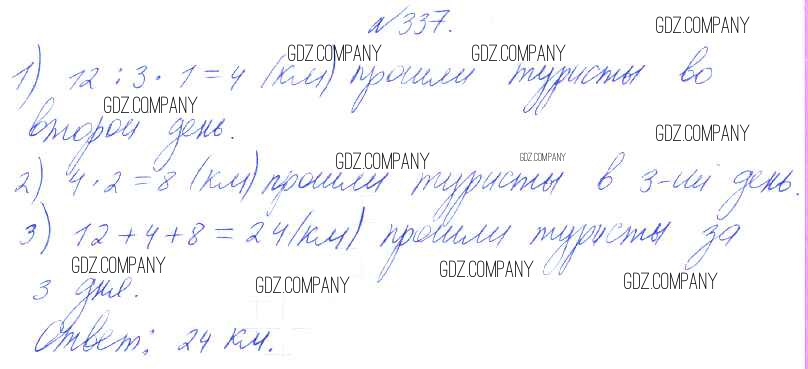 №337.
1) 12 : 3 · 1 = 4 (км) прошли туристы во
второй день.
2) 4 · 2 = 8 (км) прошли туристы в 3-ий день.
3) 12 + 4 + 8 = 24 (км) прошли туристы за
3 дня.
Ответ: 24 км.
GDZ.COMPANY
GDZ.COMPANY
GDZ.COMPANY
GDZ.COMPANY
GDZ.COMPANY
GDZ.COMPANY
GDZ.COMPANY
GDZ.COMPANY
GDZ.COMPANY
GDZ.COMPANY
GDZ.COMPANY